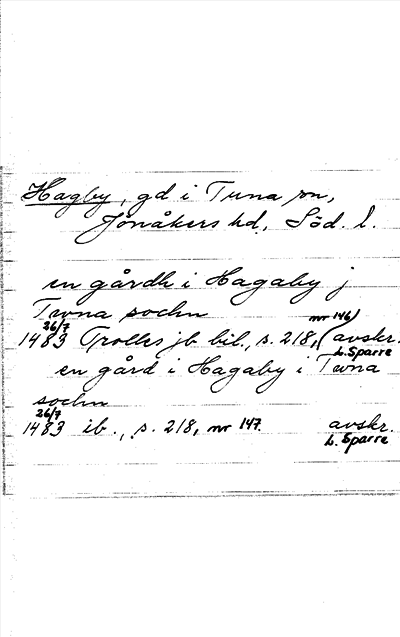 Hagby, gd i Tuna sn,
Jönåkers hd, Söd. l.
en gårdh i Hagaby j
Twna sochn
26/7 1483 Trolles jb bil., s. 218, nr 146 (avskr. L. Sparre)
en gård i Hagaby i Twna
sochn
26/7 1483 ib., s. 218, nr 147. avskr. L. Sparre